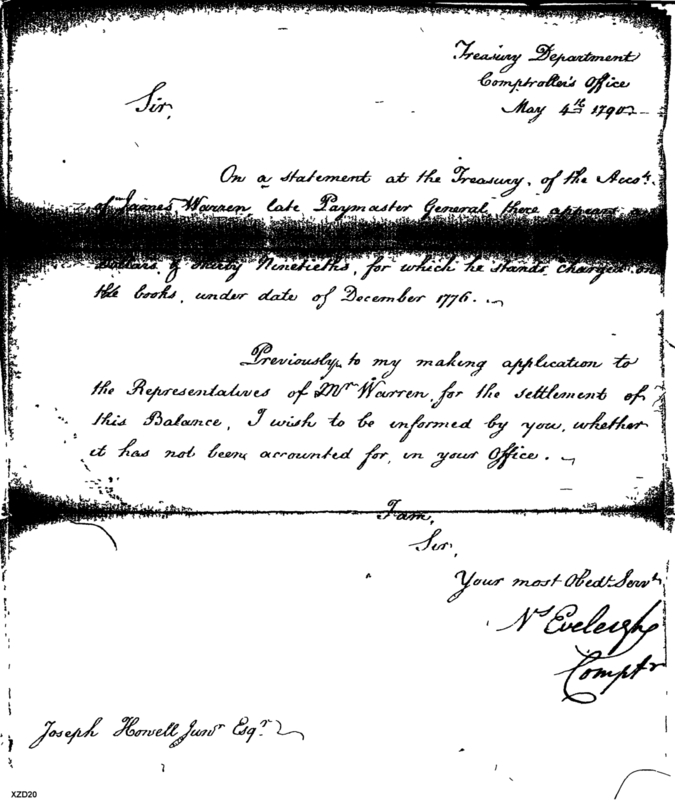 Treasury Department
Comptroller's Office
May 4th 1790
Sir,
On a statement at the Treasury, of the Accot.
of James Warren, late Paymaster General, there appears
Dollars & thirty Ninetieths, for which he stands charged on
the books, under date of December 1776.
Previously to my making application to
the Representatives of Mr Warren, for the settlement of
this Balance, I wish to be informed by you, whether
it has not been accounted for, in your Office.
I am,
Sir,
Your most Obedt. Servt
Ns Eveleigh
Comptr
Joseph Howell Junr Esqr.
XZD20